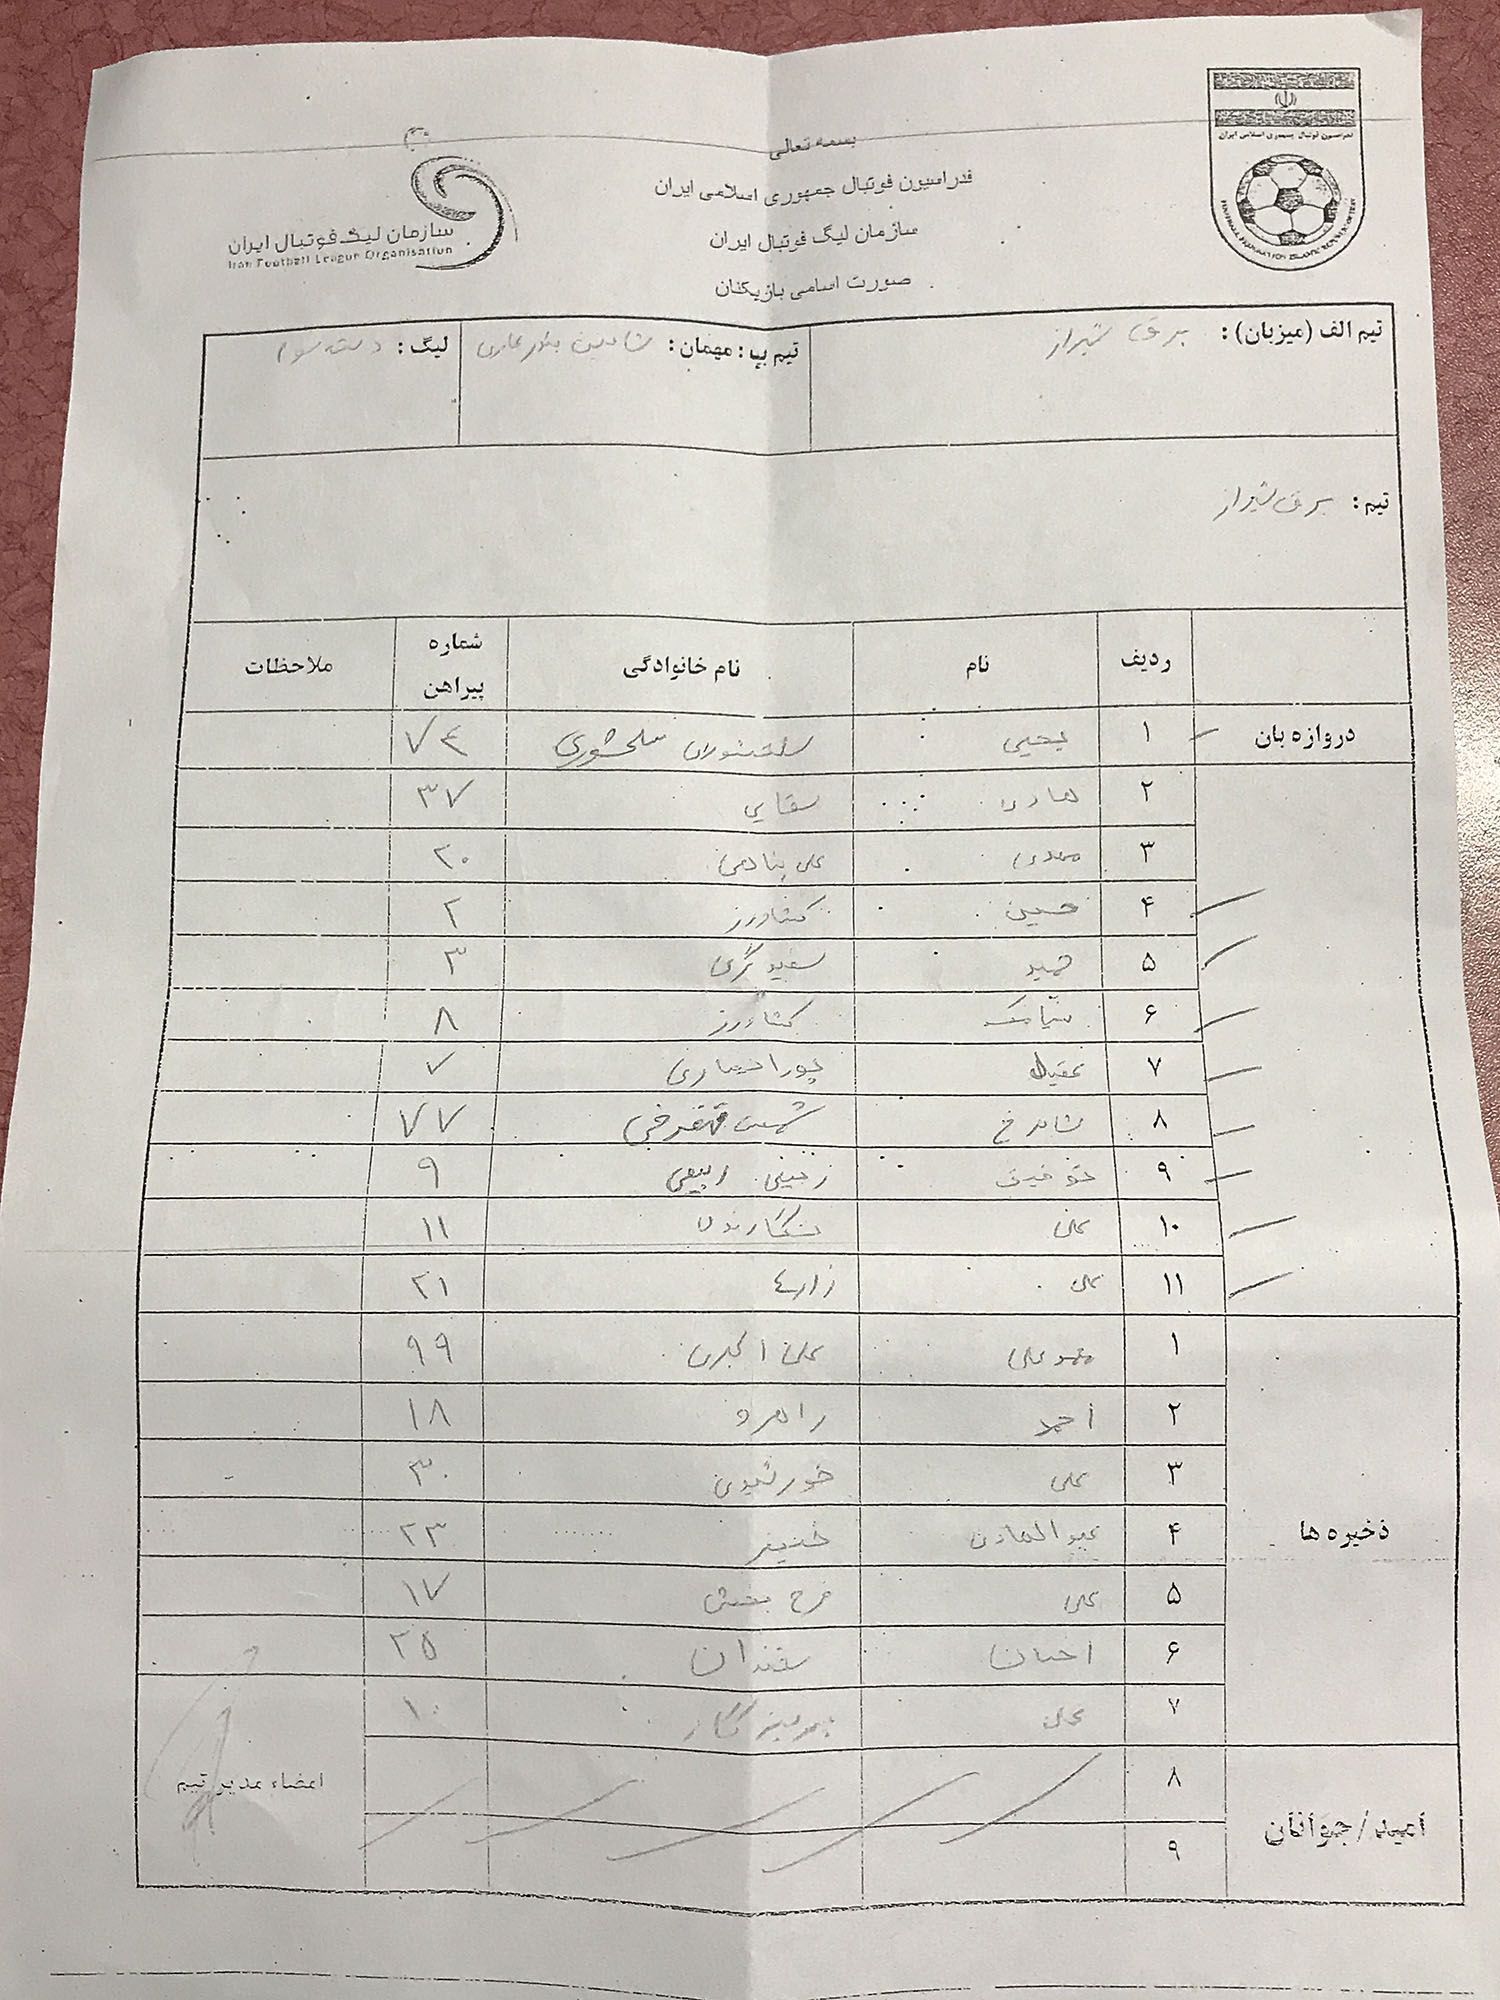 بسمه تعالی
فدراسیون فوتبال جمهوری اسلامی ایران
سازمان لیگ فوتبال ایران
صورت اسامی بازیکنان
فدراسیون فوتبال جمهوری اسلامی ایران
سازمان لیگ فوتبال ایران
Iran Football League Organisation
تیم الف (میزبان): برق شیراز
تیم ب: مهمان: شاهین بندر عامری
لیگ: دسته سوم
تیم: برق شیراز
ردیف نام نام خانوادگی شماره پیراهن ملاحظات
دروازه بان ۱ یحیی سلحشوری ۷۴
۲ هادی سقایی ۳۷
۳ مهدی علی پناهی ۲۰
۴ حسین کشاورز ۲
۵ حمید سفیدگری ۳
۶ سیامک کشاورز ۸
۷ عقیل پورانصاری ۷
۸ شاهرخ ۷۷
۹ ربیعی ۹
۱۰ علی ۱۱
۱۱ علی زارع ۲۱
ذخیره ها
۱ محمدعلی علی اکبری ۹۹
۲ احمد راهرو ۱۸
۳ علی خورشیدی ۳۰
۴ عبدالهادی خنیفر ۲۳
۵ علی فرح بخش ۱۷
۶ احسان ۲۵
۷ علی پرهیزگار ۱۰
امید/جوانان
۸
۹
امضاء مدیر تیم